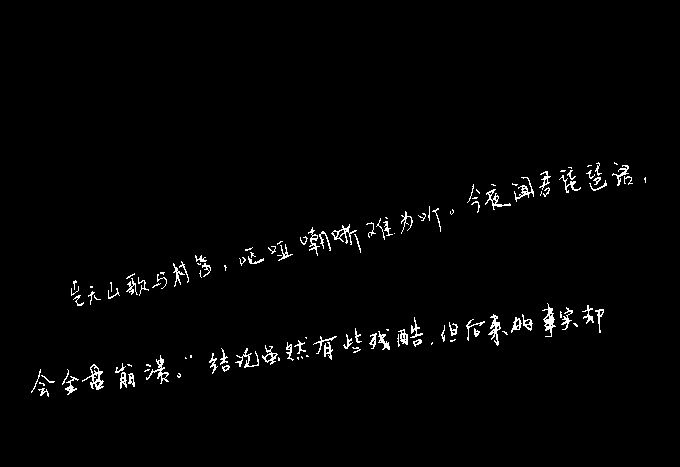 岂无山歌与村笛，呕哑嘲哳难为听。今夜闻君琵琶语，
会全盘崩溃。”结论虽然有些残酷，但后来的事实却